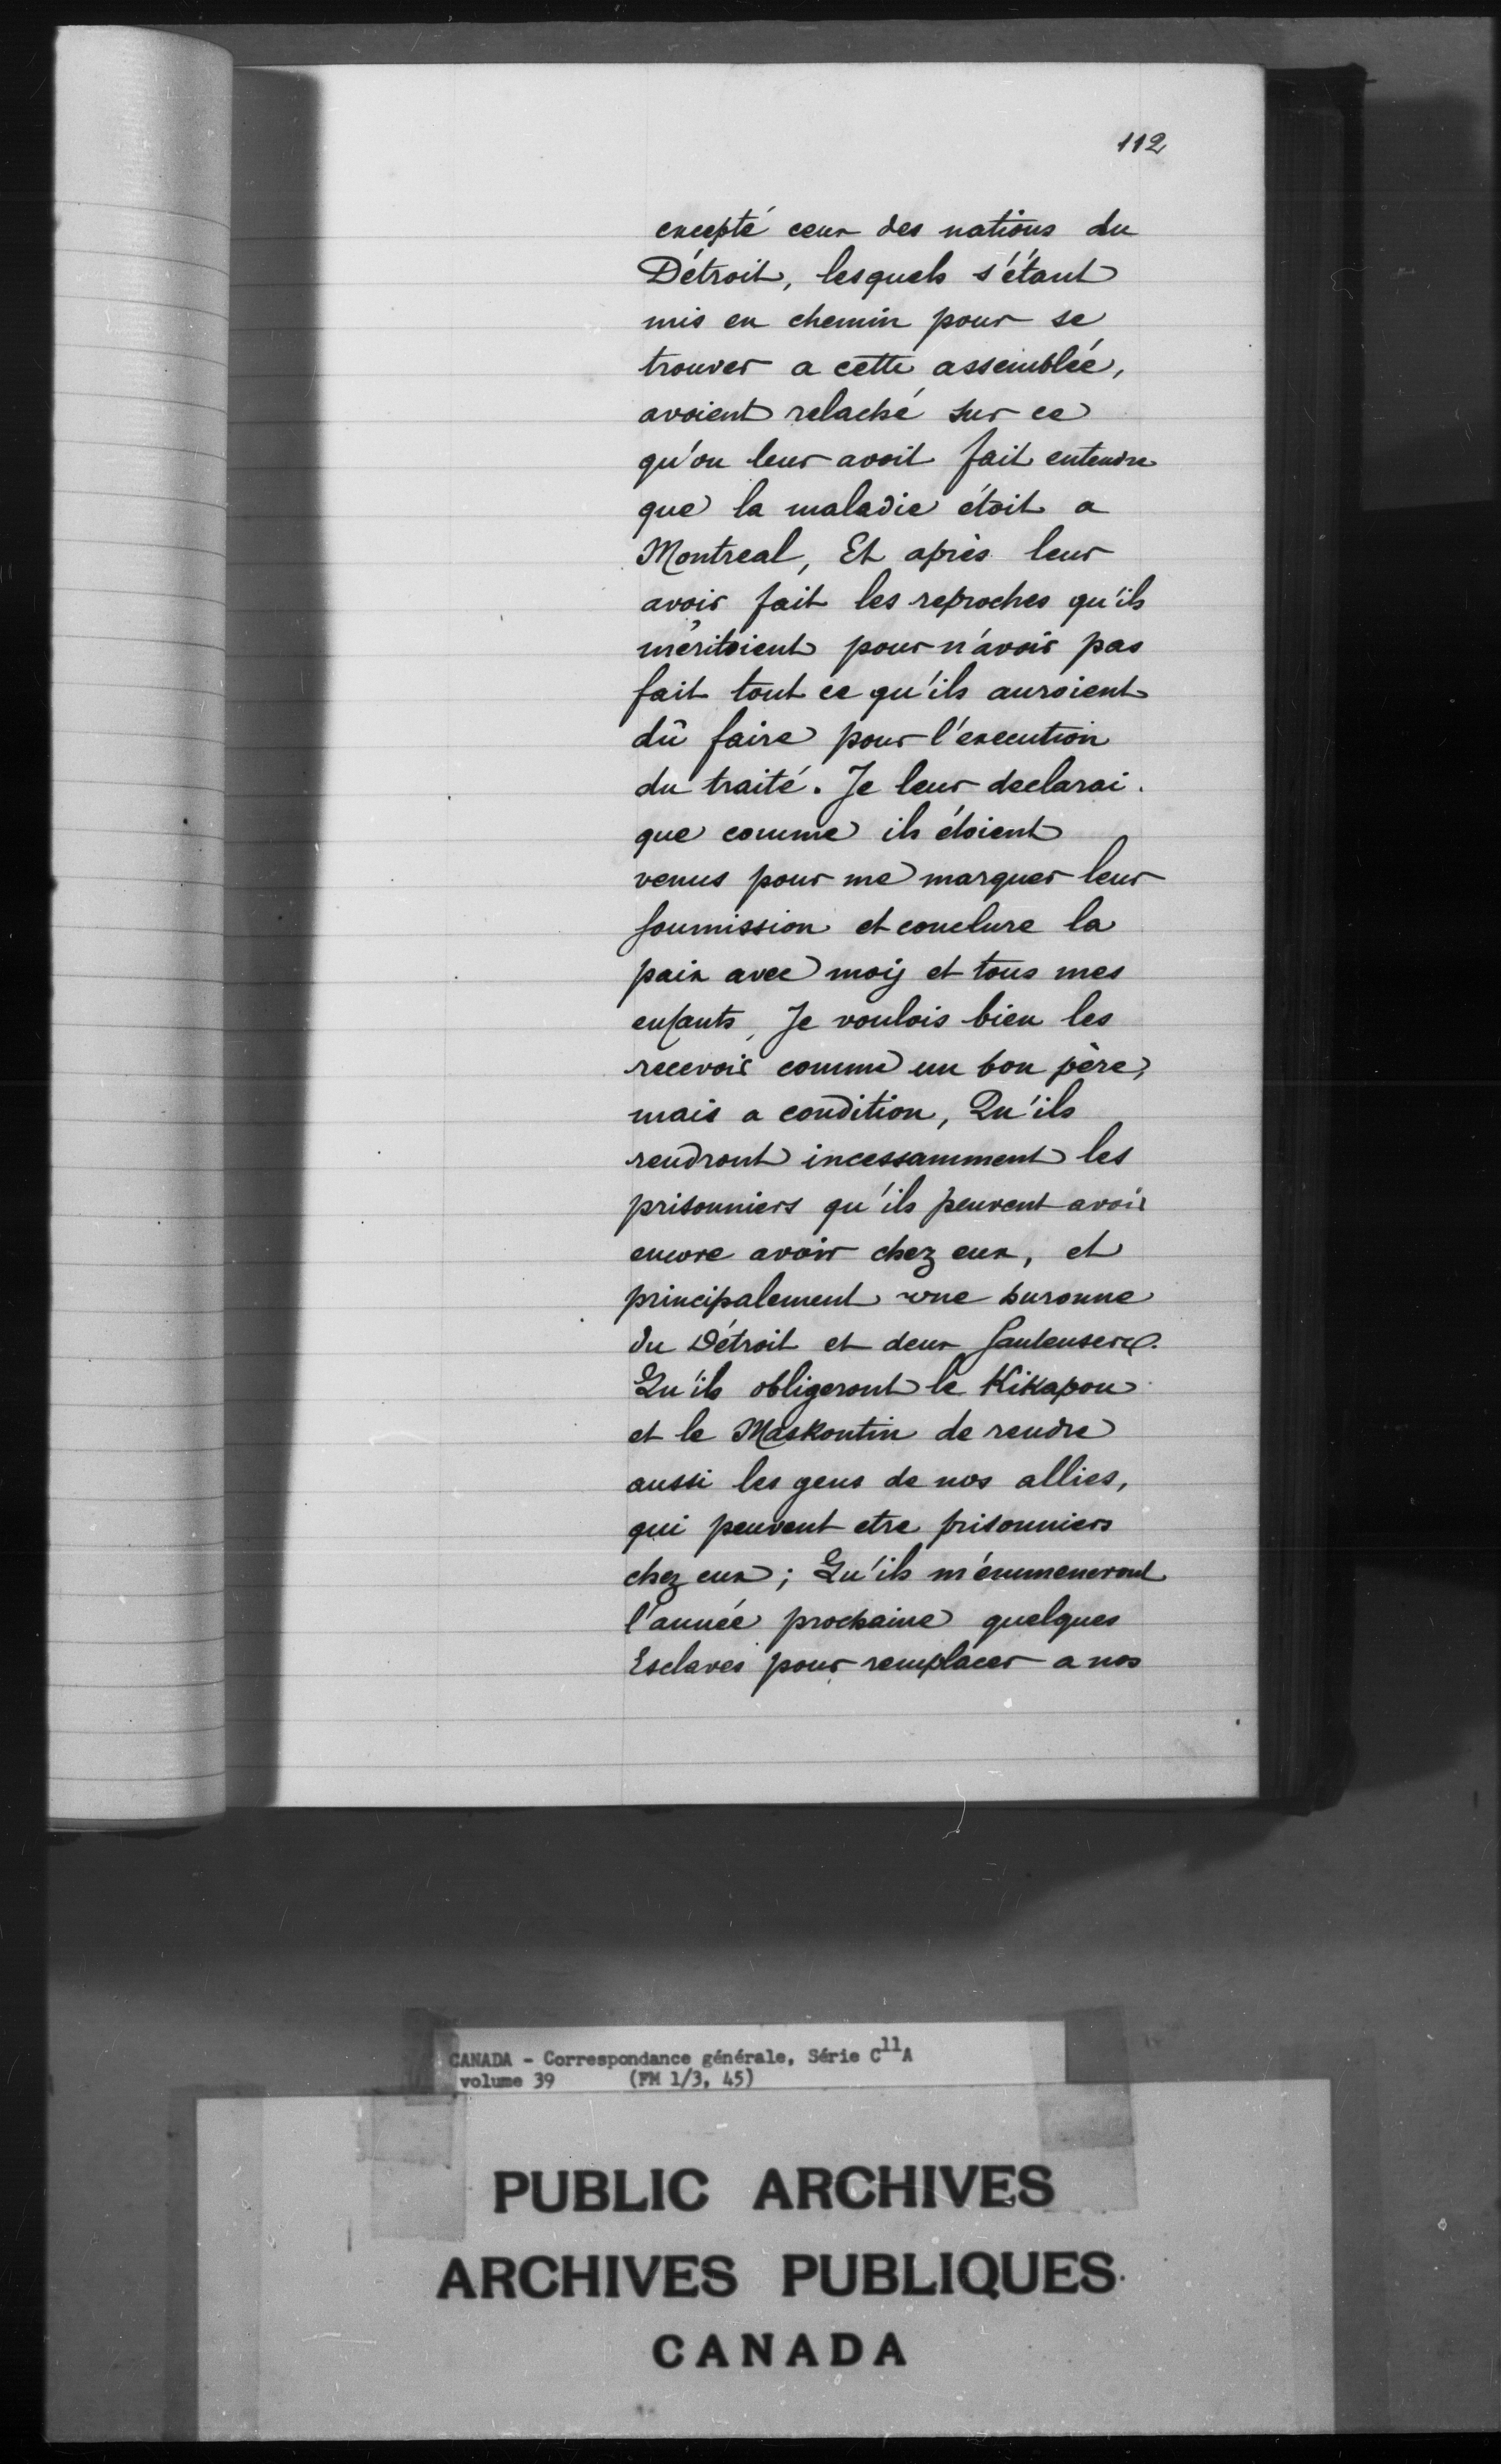 112
excepté ceux des nations du
Détroit, lesquels s'étant
mis en chemin pour se
trouver a cette assemblée,
avoient relaché sur ce
qu'on leur avoit fait entendre
que la maladie étoit a
Montreal, Et après leur
avoir fait les reproches qu'ils
méritoient pour n'avoir pas
fait tout ce qu'ils auroient
dû faire pour l'execution
du traité. Je leur declarai.
que comme ils étoient
venus pour me marquer leur
soumission et conclure la
paix avec moy et tous mes
enfants, Je voulois bien les
recevoir comme un bon père,
mais a condition, Qu'ils
rendront incessamment les
prisonniers qu'ils peuvent avoir
encore avoir chez eux, et
principalement une huronne
du Détroit et deux Sauteuses.
Qu'ils obligeront le Kikapou
et le Maskoutin de rendre
aussi les gens de nos allies,
qui peuvent etre prisonniers
chez eux; Qu'ils m'emmeneront
l'année prochaine quelques
Esclaves pour remplacer a nos
CANADA - Correspondance générale, Série C11A
volume 39 (FM 1/3, 45)
PUBLIC ARCHIVES
ARCHIVES PUBLIQUES
CANADA